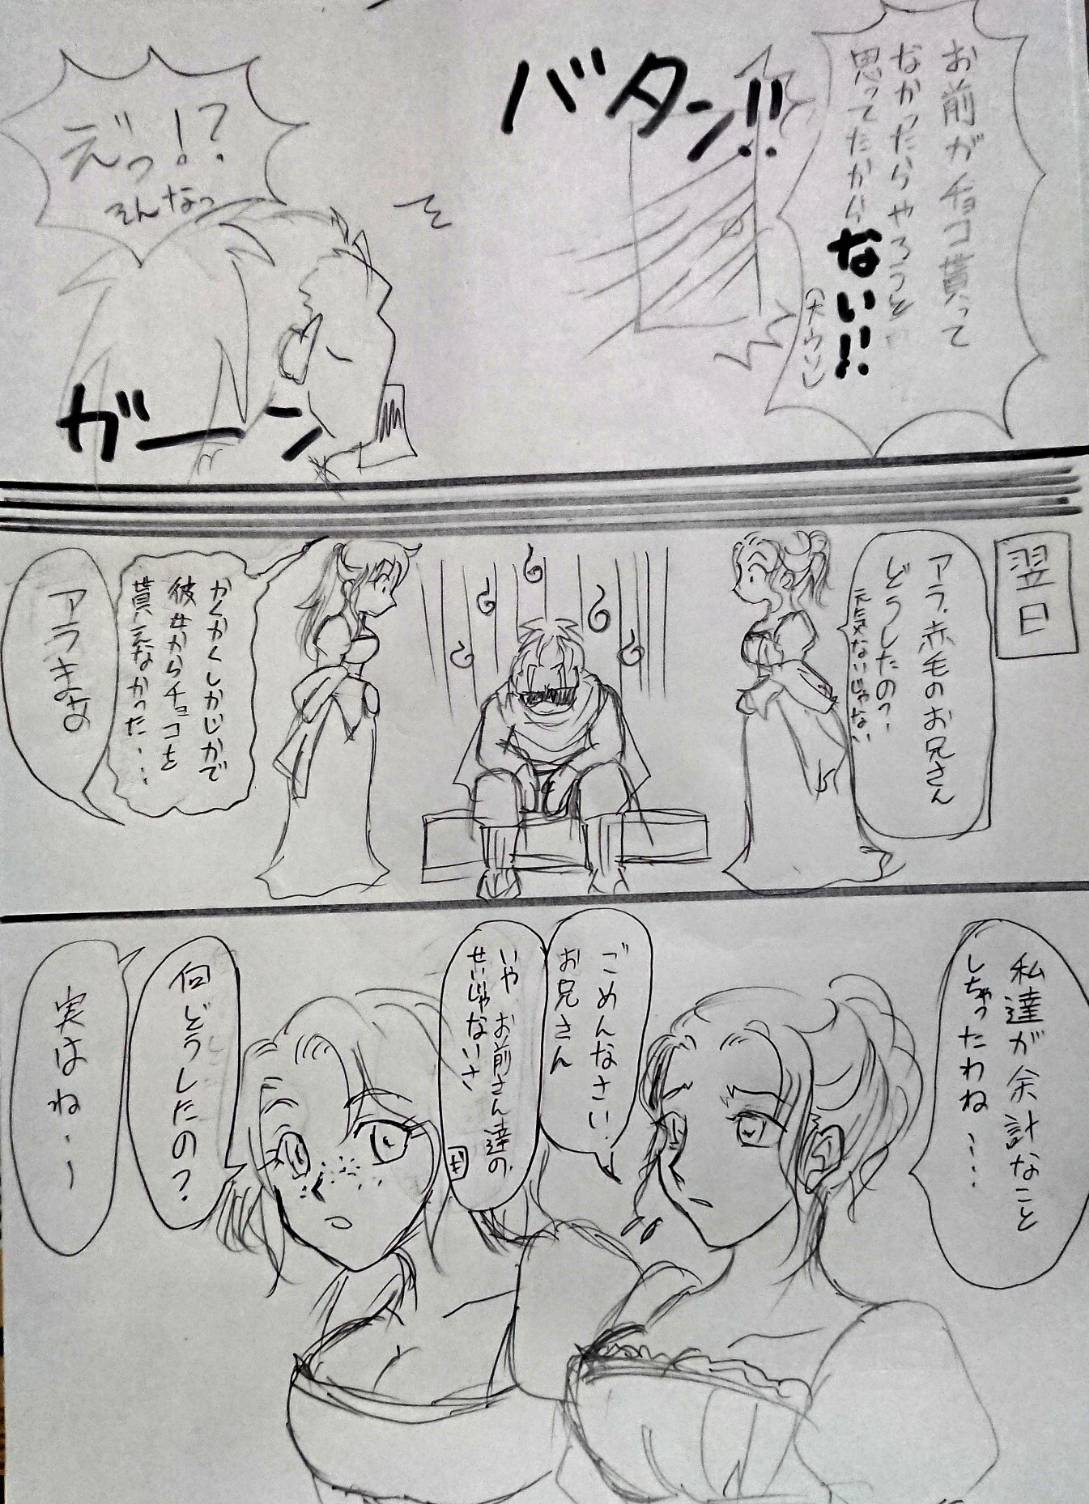 お前がチョコ貰って
なかったらやろうと
思ってたから
ない!!
(大ウソ)
バタン!!
えっ!?
そんなっ
ガーン
翌日
アラ、赤毛のお兄さん
どうしたの?
元気ないじゃない
かくかくしかじかで
彼女からチョコを
貰えなかった・・・
アラまぁ
私達が余計なこと
しちゃったわね・・・・
ごめんなさい
お兄さん
いやお前さん達の
せいじゃないさ
何どうしたの?
実はね〜